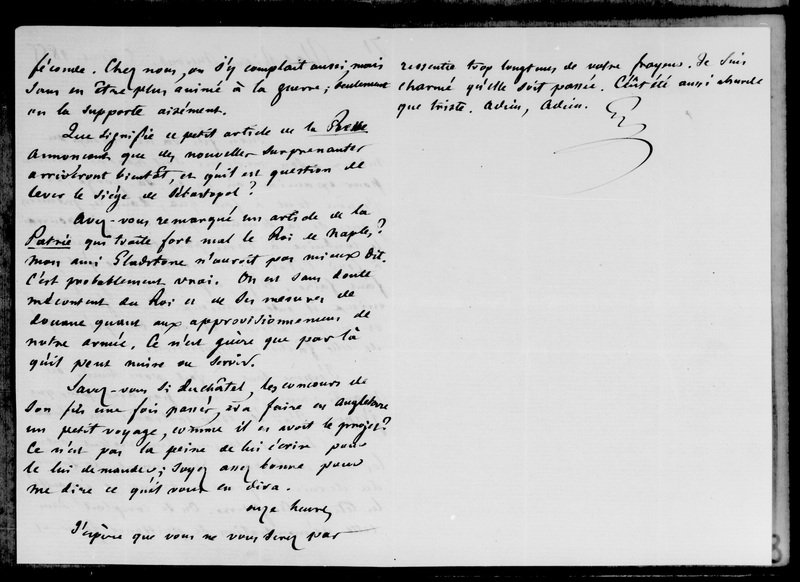 féconde. Chez nous, on s'y complait aussi, mais
sans en être plus animé à la guerre ; seulement
on la supporte aisément.
Que signifie ce petit article de la Presse
annonçant que des nouvelles surprenantes
arriveront bientôt, et qu'il est question de
lever le siège de Sébastopol ?
Avez-vous remarqué un article de la
Patrie qui traite fort mal le Roi de Naples ?
Mon ami Gladstone n'auroit pas mieux dit.
C'est probablement vrai. On est sans doute
mécontent du Roi et de ses mesures de
douane quant aux approvisionnemens de
notre armée. Ce n'est guère que par là
qu'il peut nuire ou servir.
Savez-vous si Duchâtel, les concours de
son fils une fois passés, ira faire en Angleterre
un petit voyage, comme il en avoit le projet ?
Ce n'est pas la peine de lui écrire pour
le lui demander ; soyez assez bonne pour
me dire ce qu'il vous en dira.
onze heures
J'espère que vous ne vous serez pas
ressentie trop longtems de votre frayeur. Je suis
charmé qu'elle soit passée. C'eût été aussi absurde
que triste. Adieu, Adieu.